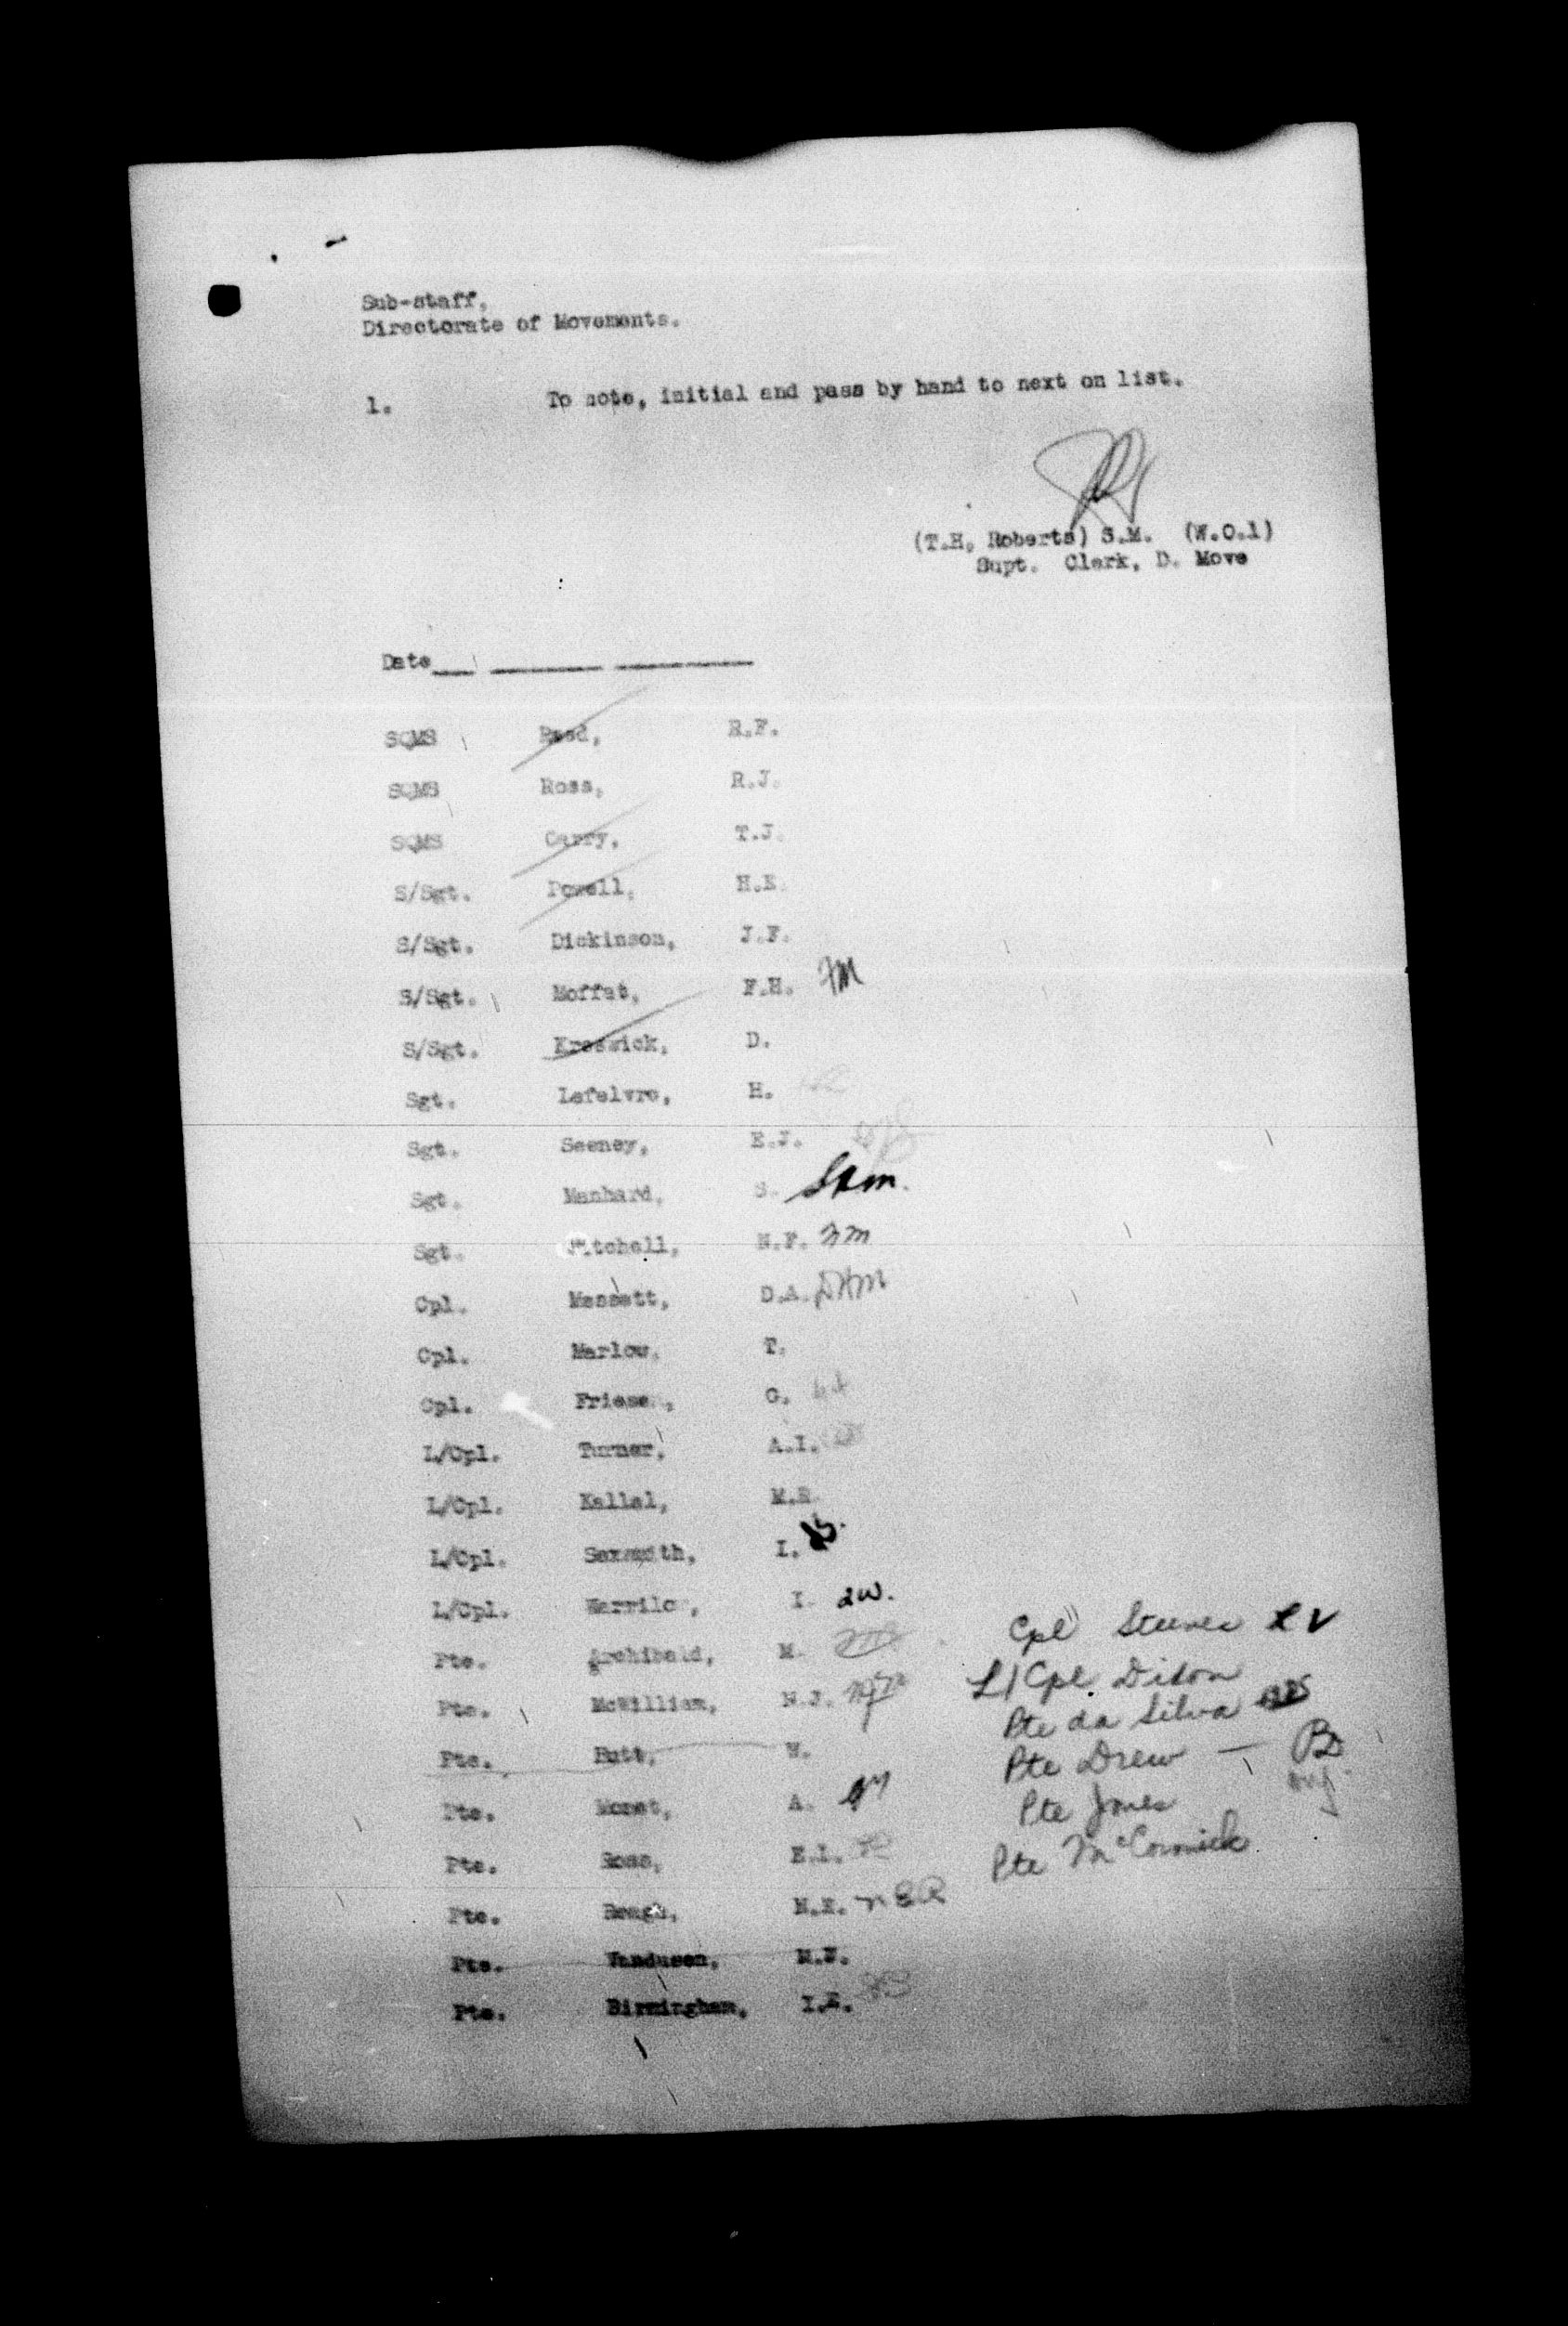 Sub-staff,
Directorate of Movements.
1. To note, initial and pass by hand to next on list.
(T.H. Roberts) S.M. (W.O.1)
Supt. Clerk, D. Move
Date
SQMS Reed, R.F.
SQMS Ross, R.J.
SQMS Carry, T.J.
S/Sgt. Powell, H.E.
S/Sgt. Dickinson, J.F.
S/Sgt. Moffat, F.H. FM
S/Sgt. Kreswick, D.
Sgt. Lefelvre, H.
Sgt. Seeney, E.J.
Sgt. Manhard, S. Sam.
Sgt. Mitchell, N.F. NM
Cpl. Messett, D.A. DAM
Cpl. Marlow, T.
Cpl. Friesen, G.
L/Cpl. Turner, A.I.
L/Cpl. Kallal, M.R.
L/Cpl. Saxsmith, I.
L/Cpl. I. IW.
Pte. Archibald, M.
Pte. McWilliam, N.J.
Pte. Butt, W.
Pte. Monet, A. AM
Pte. Ross, E.L.
Pte. N.E. NER
Pte. Vandusen, M.F.
Pte. Birmingham, I.E.
Cpl
L/Cpl. Dixon
Pte da Silva
Pte Drew — BD
Pte Jones
Pte McCormick